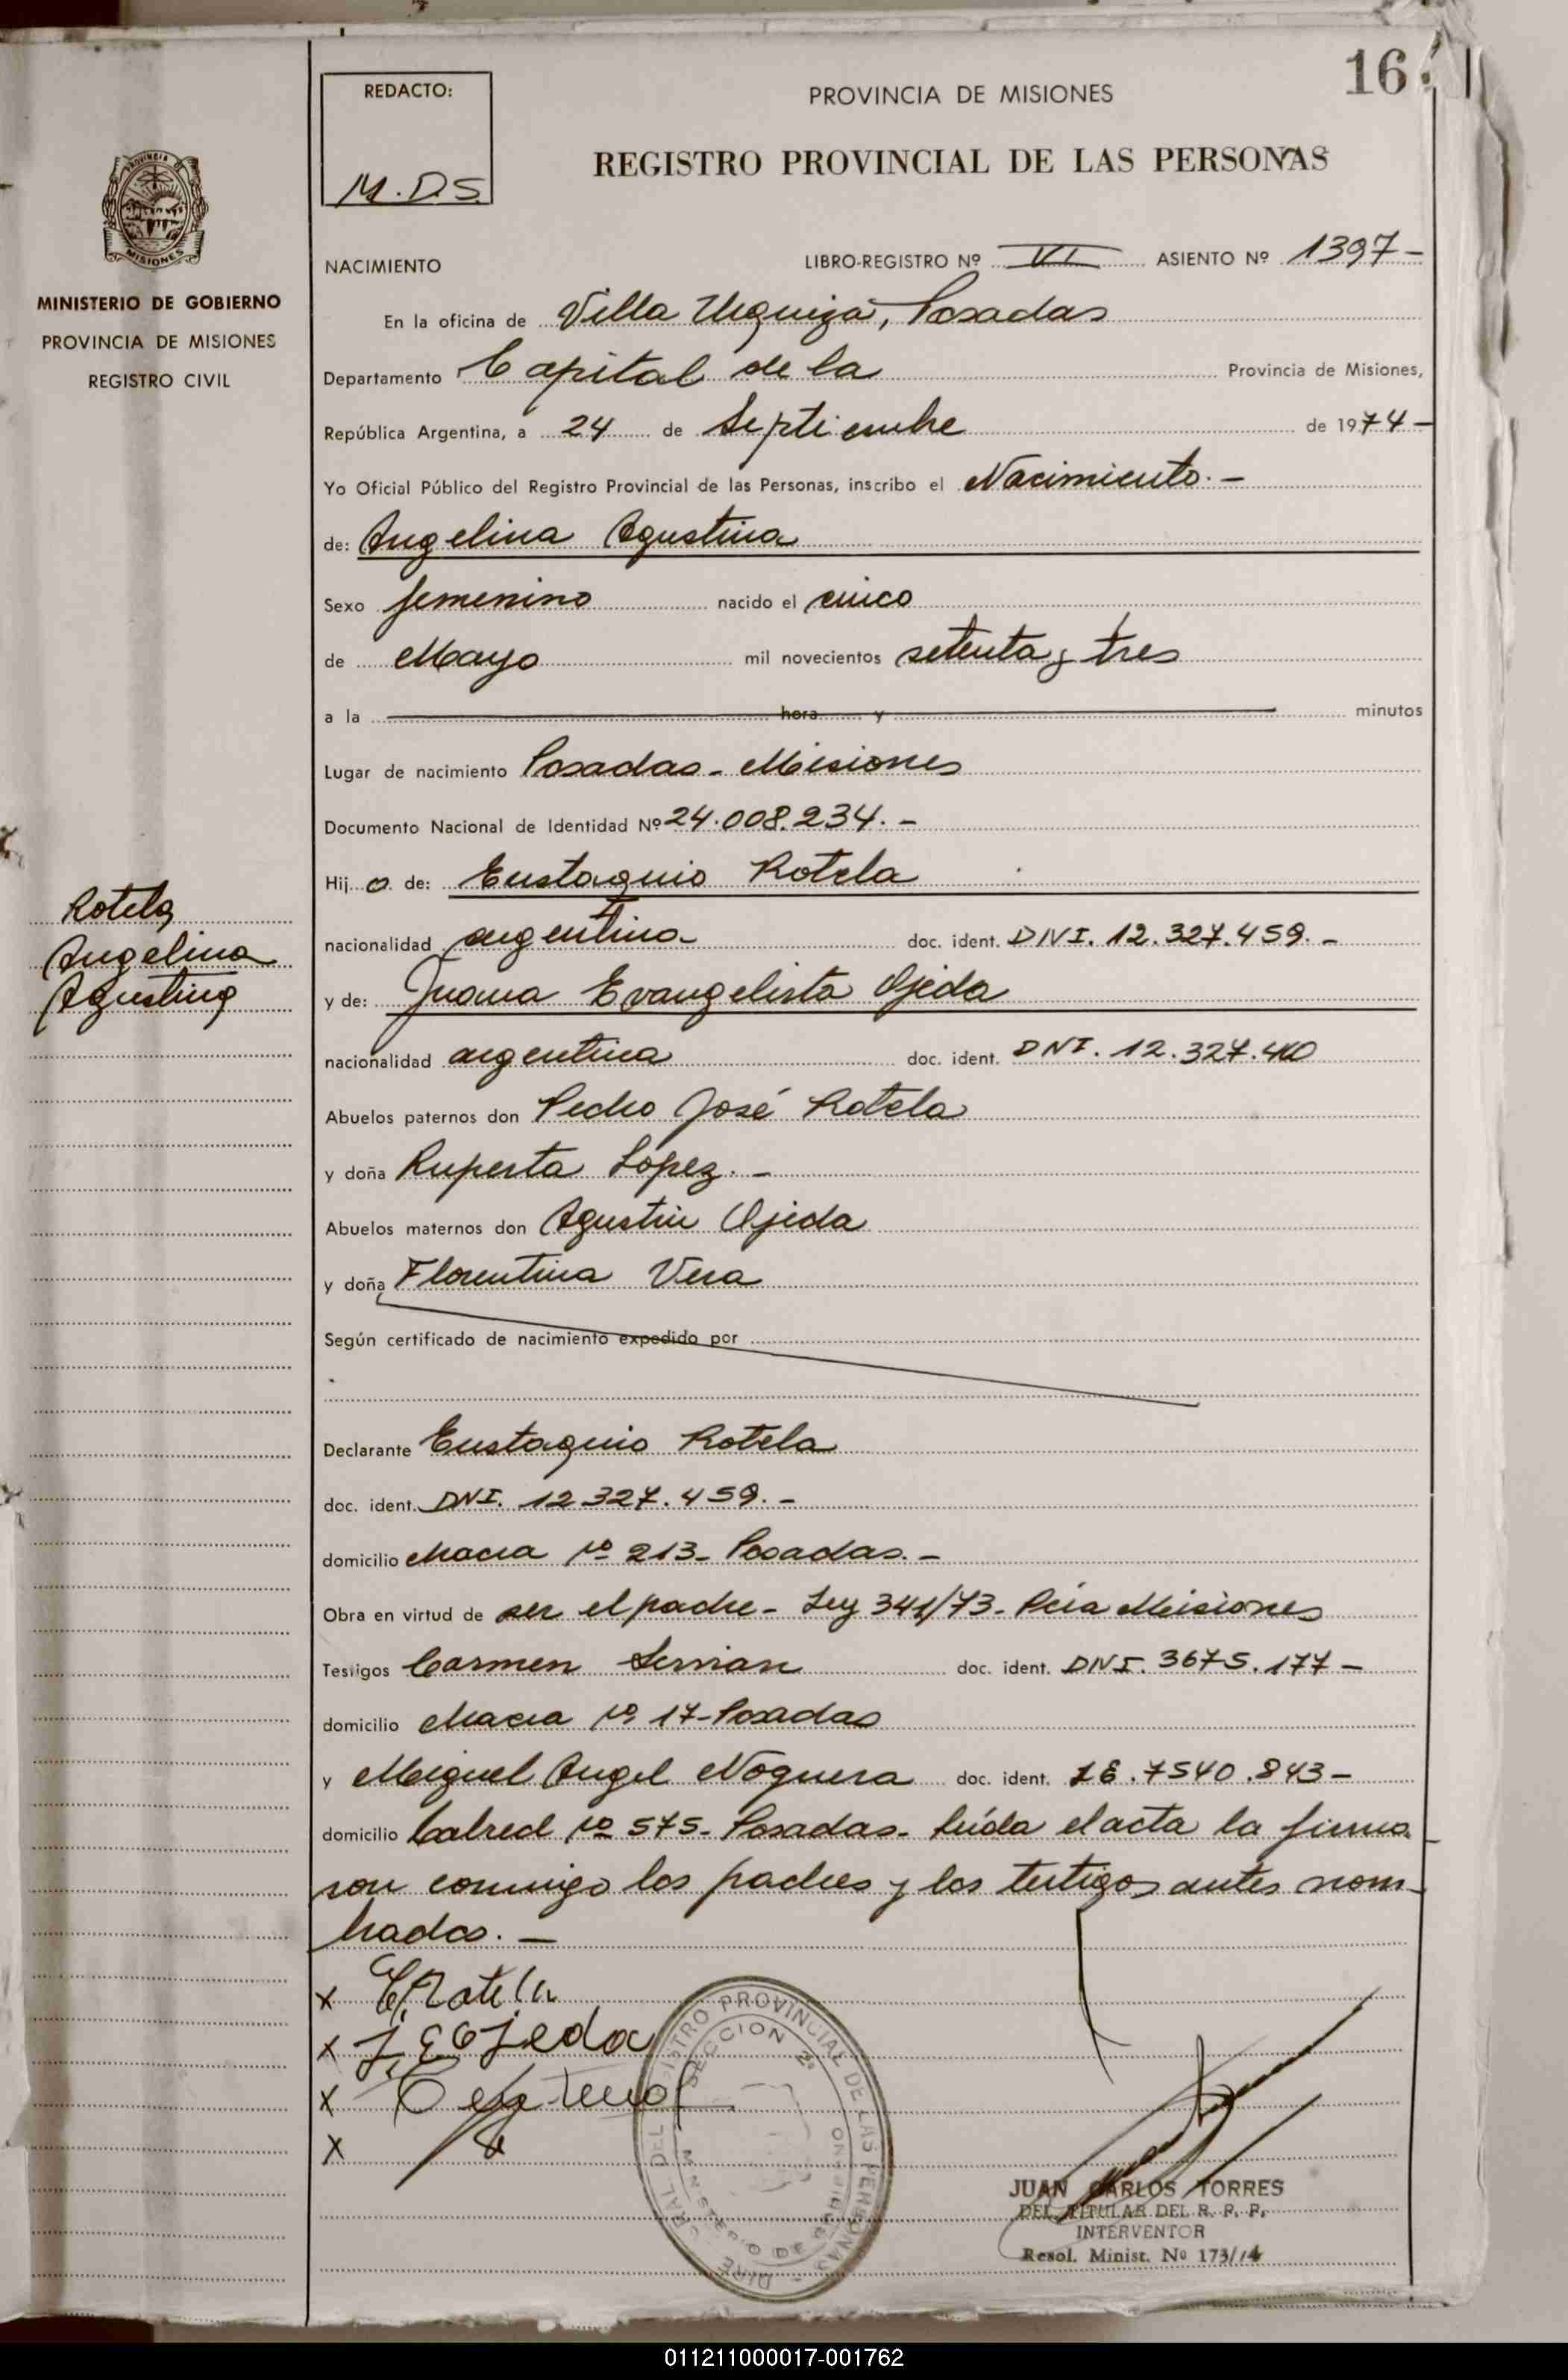 16
REDACTO:
M.D.S.
PROVINCIA DE MISIONES
REGISTRO PROVINCIAL DE LAS PERSONAS
PROVINCIA DE
MISIONES
MINISTERIO DE GOBIERNO
PROVINCIA DE MISIONES
REGISTRO CIVIL
NACIMIENTO LIBRO-REGISTRO Nº VI ASIENTO Nº 1397-
En la oficina de Villa Urquiza, Posadas
Departamento Capital de la Provincia de Misiones,
República Argentina, a 24 de Septiembre de 1974-
Yo Oficial Público del Registro Provincial de las Personas, inscribo el Nacimiento.-
de: Angelina Agustina
Sexo femenino nacido el cinco
de Mayo mil novecientos setenta y tres
a la hora y minutos
Lugar de nacimiento Posadas - Misiones
Documento Nacional de Identidad Nº 24.008.234.-
Hij a de: Eustaquio Rotela
nacionalidad argentina doc. ident. DNI. 12.327.459.-
y de: Juana Evangelista Ojeda
nacionalidad argentina doc. ident. DNI. 12.327.410
Abuelos paternos don Pedro José Rotela
y doña Ruperta Lopez.-
Abuelos maternos don Agustin Ojeda
y doña Florentina Vera
Según certificado de nacimiento expedido por
Declarante Eustaquio Rotela
doc. ident. DNI. 12.327.459.-
domicilio Chacra nº 213- Posadas.-
Obra en virtud de ser el padre- Ley 341/73- Pcia Misiones
Testigos Carmen Servian doc. ident. DNI. 3675.177-
domicilio Chacra nº 17- Posadas
y Miguel Angel Noguera doc. ident. 7540.843-
domicilio Cabred nº 575- Posadas- leída el acta la firma
ron conmigo los padres y los testigos antes nom-
brados.-
Rotela
Angelina
Agustina
x E. Rotela
x J. E Ojeda
x
x
REGISTRO PROVINCIAL DE LAS PERSONAS
SECCION 2ª
MINISTERIO DE GOBIERNO
JUAN CARLOS TORRES
DEL TITULAR DEL R. P. P.
INTERVENTOR
Resol. Minist. Nº 173/14
011211000017-001762